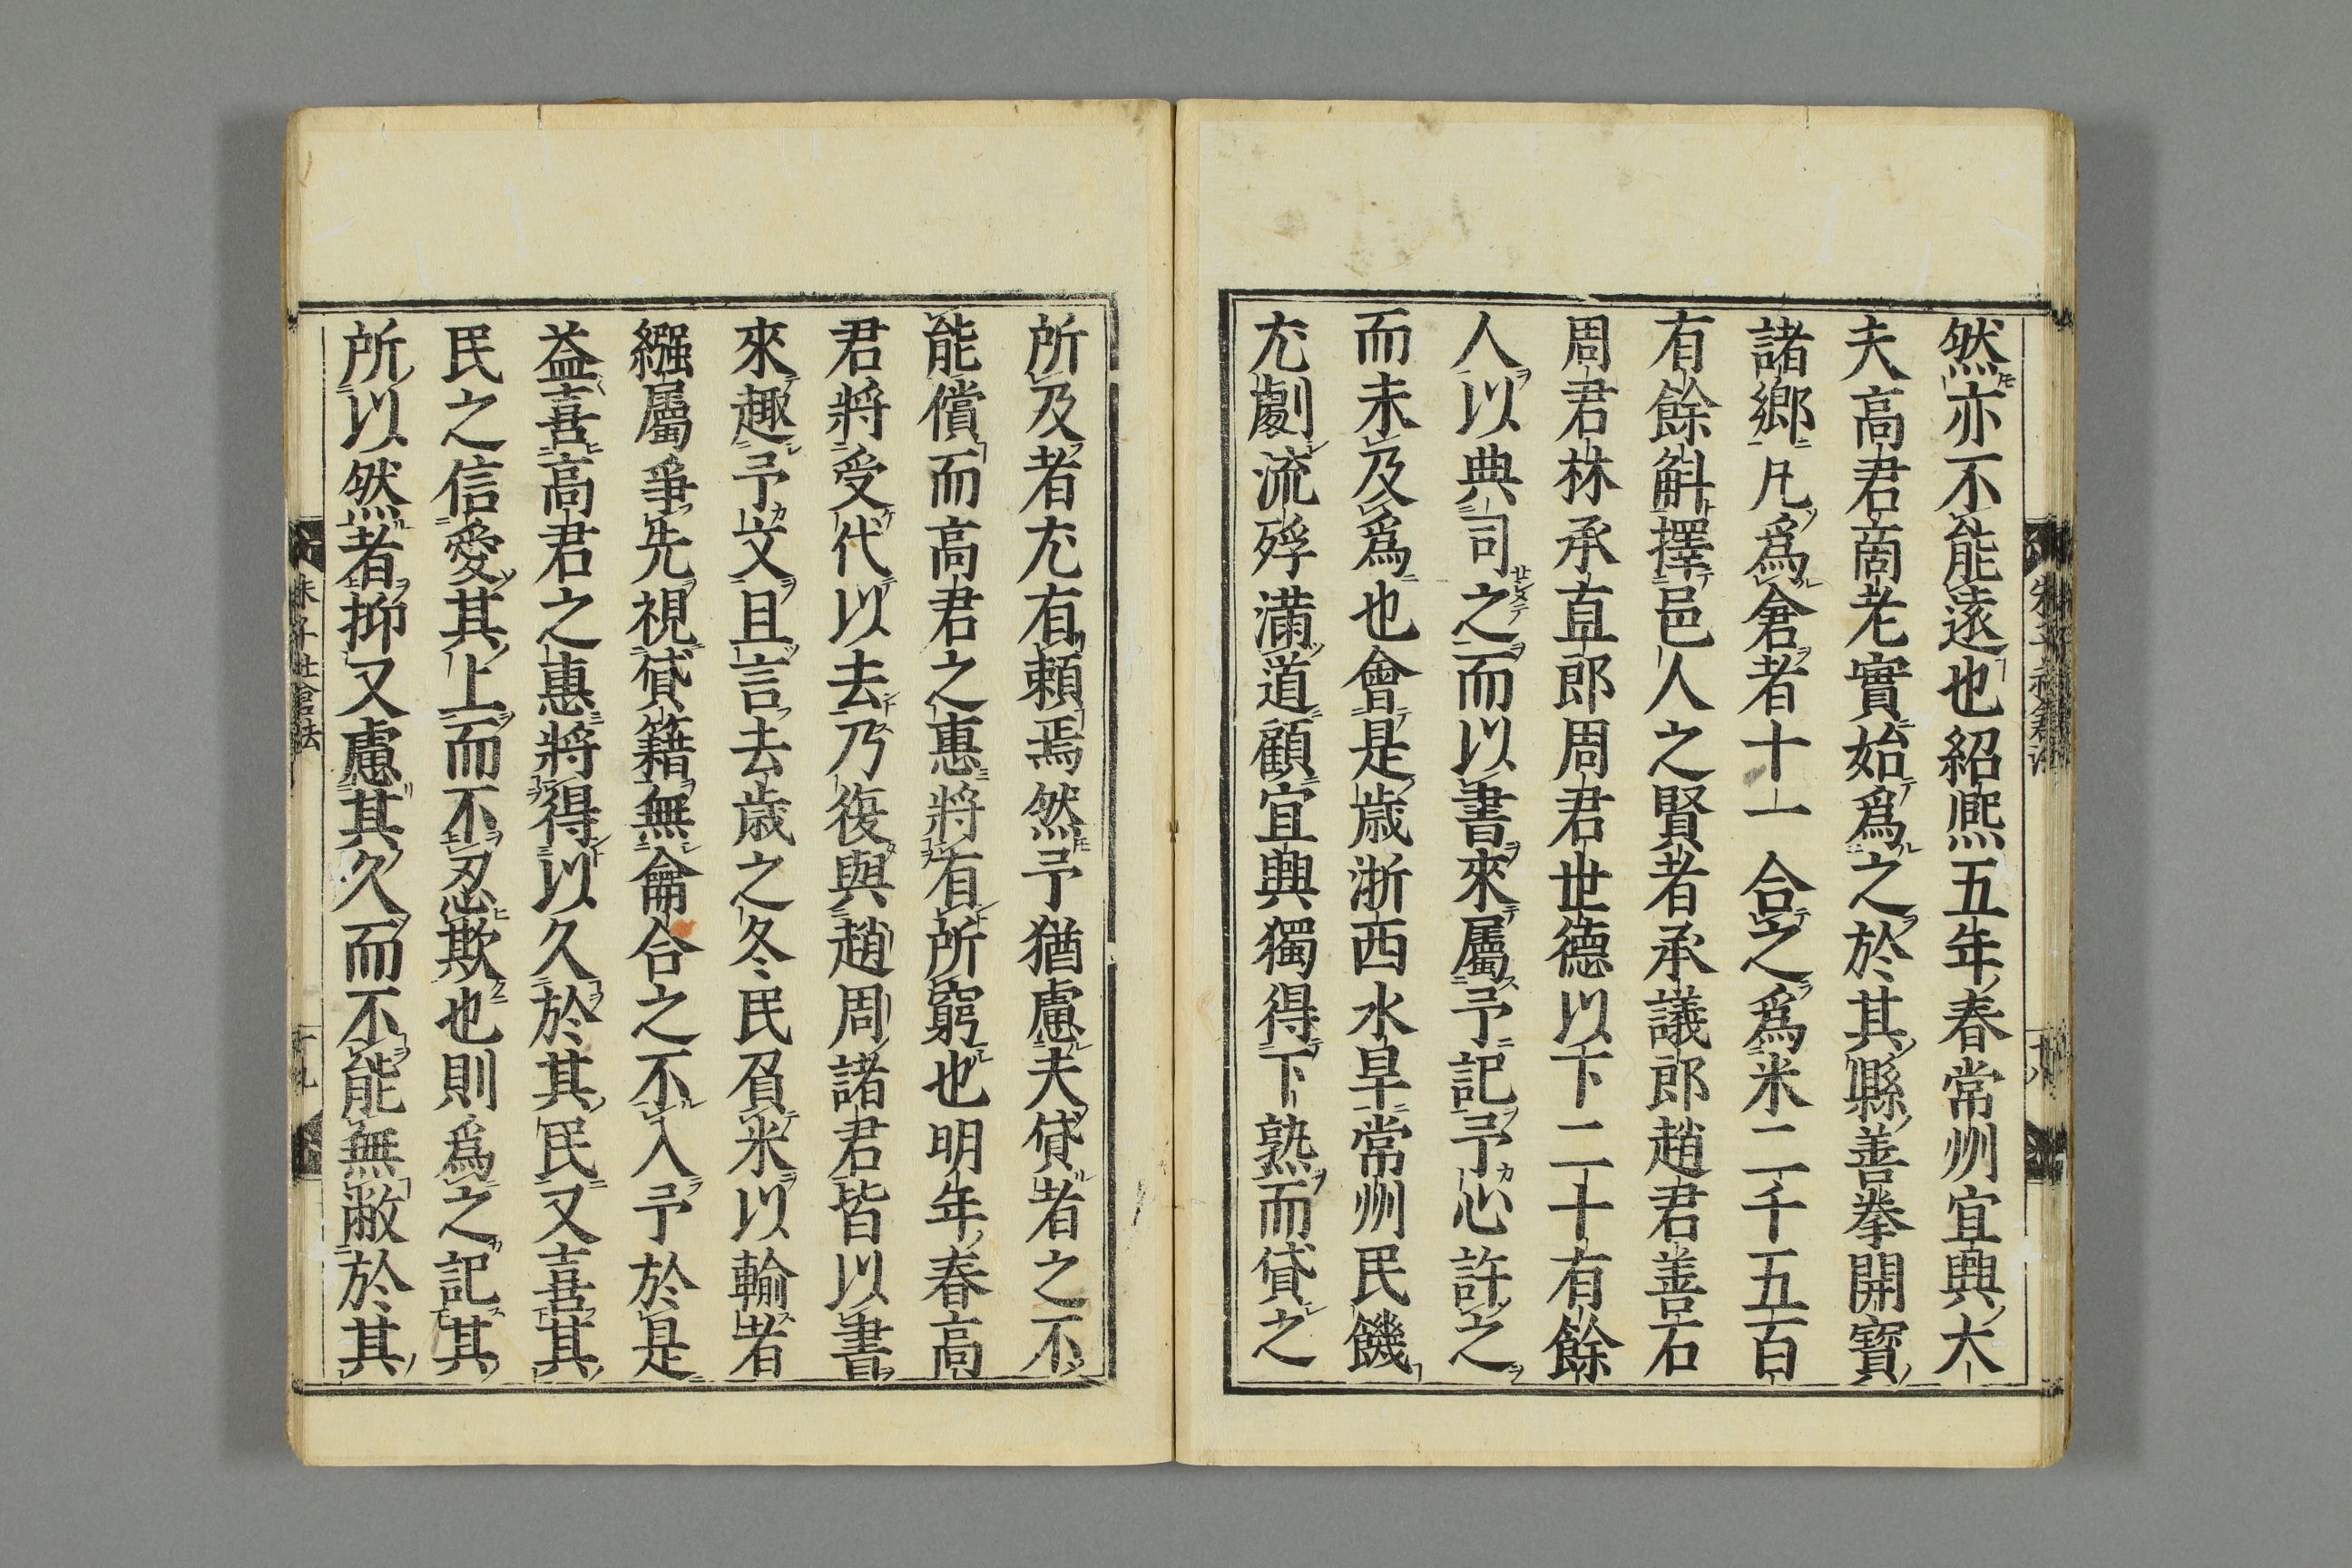 然亦不能遠也紹熈五年春常州宜興大
夫高君商老實始爲之於其縣善拳開寶
諸郷凡爲倉者十一合之爲米二千五百
有餘斛擇邑人之賢者承議郎趙君善石
周君林承直郎周君世德以下二十有餘
人以典司之而以書來屬予記予心許之
而未及爲也會是歳浙西水旱常州民饑
尤劇流殍滿道顧宜興獨得下熟而貸之
所及者尤有頼焉然予猶慮夫貸者之不
能償而高君之惠將有所窮也明年春高
君將受代以去乃復與趙周諸君皆以書
來趣予文且言去歳之冬民負米以輸者
繦屬爭先視貸籍無龠合之不入予於是
益喜高君之惠將得以久於其民又喜其
民之信愛其上而不忍欺也則爲之記其
所以然者抑又慮其久而不能無敝於其
朱子社倉法